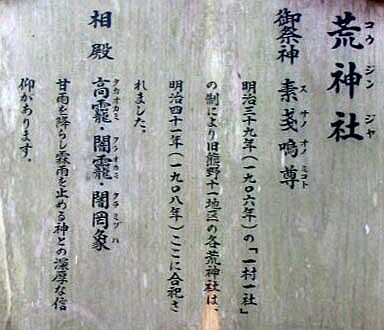 荒神社
コウジンジヤ
御祭神 素戔嗚尊
スサノオノミコト
明治三十九年(一九〇六年)の「一村一社」
の制により旧熊野十一地区の各荒神社は、
明治四十一年(一九〇八年)ここに合祀さ
れました。
相殿 高龗・闇龗・闇罔象
タカオカミ クラオカミ クラミヅハ
甘雨を降らし霖雨を止める神との深厚な信
仰があります。